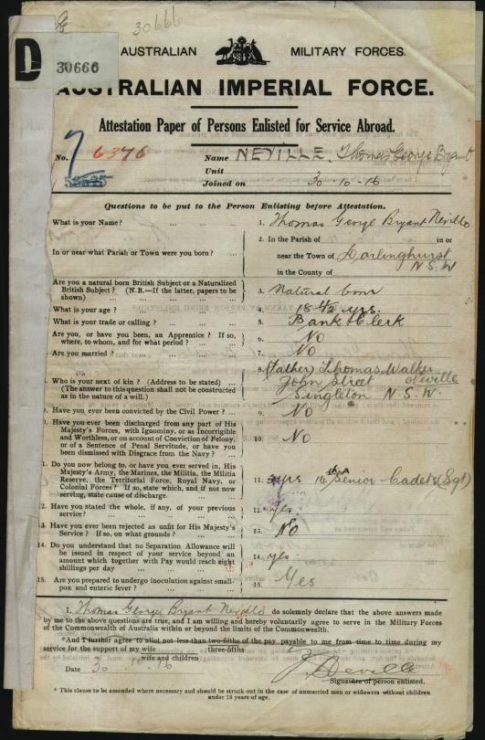 30666
D 30666
AUSTRALIAN MILITARY FORCES.
AUSTRALIAN IMPERIAL FORCE.
Attestation Paper of Persons Enlisted for Service Abroad.
No. 6376 Name NEVILLE, Thomas George Bryant
Unit
Joined on 30-10-16
Questions to be put to the Person Enlisting before Attestation.
What is your Name? ... ... 1. Thomas George Bryant Neville
In or near what Parish or Town were you born? ... 2. In the Parish of in or
near the Town of Darlinghurst
in the County of N.S.W
Are you a natural born British Subject or a Naturalized
British Subject? (N.B.—If the latter, papers to be
shown) 3. Natural born
What is your age? 4. 18 yrs.
What is your trade or calling? 5. Bank Clerk
Are you, or have you been, an Apprentice? If so,
where, to whom, and for what period? 6. No
Are you married? 7. No
Who is your next of kin? (Address to be stated)
(The answer to this question shall not be construed
as in the nature of a will.) 8. (Father) Thomas Walter
John Street Neville
Singleton N.S.W.
Have you ever been convicted by the Civil Power? 9. No
Have you ever been discharged from any part of His
Majesty's Forces, with Ignominy, or as Incorrigible
and Worthless, or on account of Conviction of Felony,
or of a Sentence of Penal Servitude, or have you
been dismissed with Disgrace from the Navy? 10. No
1. Do you now belong to, or have you ever served in, His
Majesty's Army, the Marines, the Militia, the Militia
Reserve, the Territorial Force, Royal Navy, or
Colonial Forces? If so, state which, and if not now
serving, state cause of discharge. 11. yrs Senior Cadets (Sgt)
12. Have you stated the whole, if any, of your previous
service? 12. yes
13. Have you ever been rejected as unfit for His Majesty's
Service? If so, on what grounds? 13. No
14. Do you understand that no Separation Allowance will
be issued in respect of your service beyond an
amount which together with Pay would reach eight
shillings per day 14. yes
15. Are you prepared to undergo inoculation against small-
pox and enteric fever? 15. Yes
I, Thomas George Bryant Neville do solemnly declare that the above answers made
by me to the above questions are true, and I am willing and hereby voluntarily agree to serve in the Military Forces
of the Commonwealth of Australia within or beyond the limits of the Commonwealth.
*And I further agree to allot not less than two-fifths of the pay payable to me from time to time during my
service for the support of my wife three-fifths
wife and children
Date 30 10 16 T. Neville
Signature of person enlisted.
* This clause to be amended where necessary and should be struck out in the case of unmarried men or widowers without children
under 18 years of age.